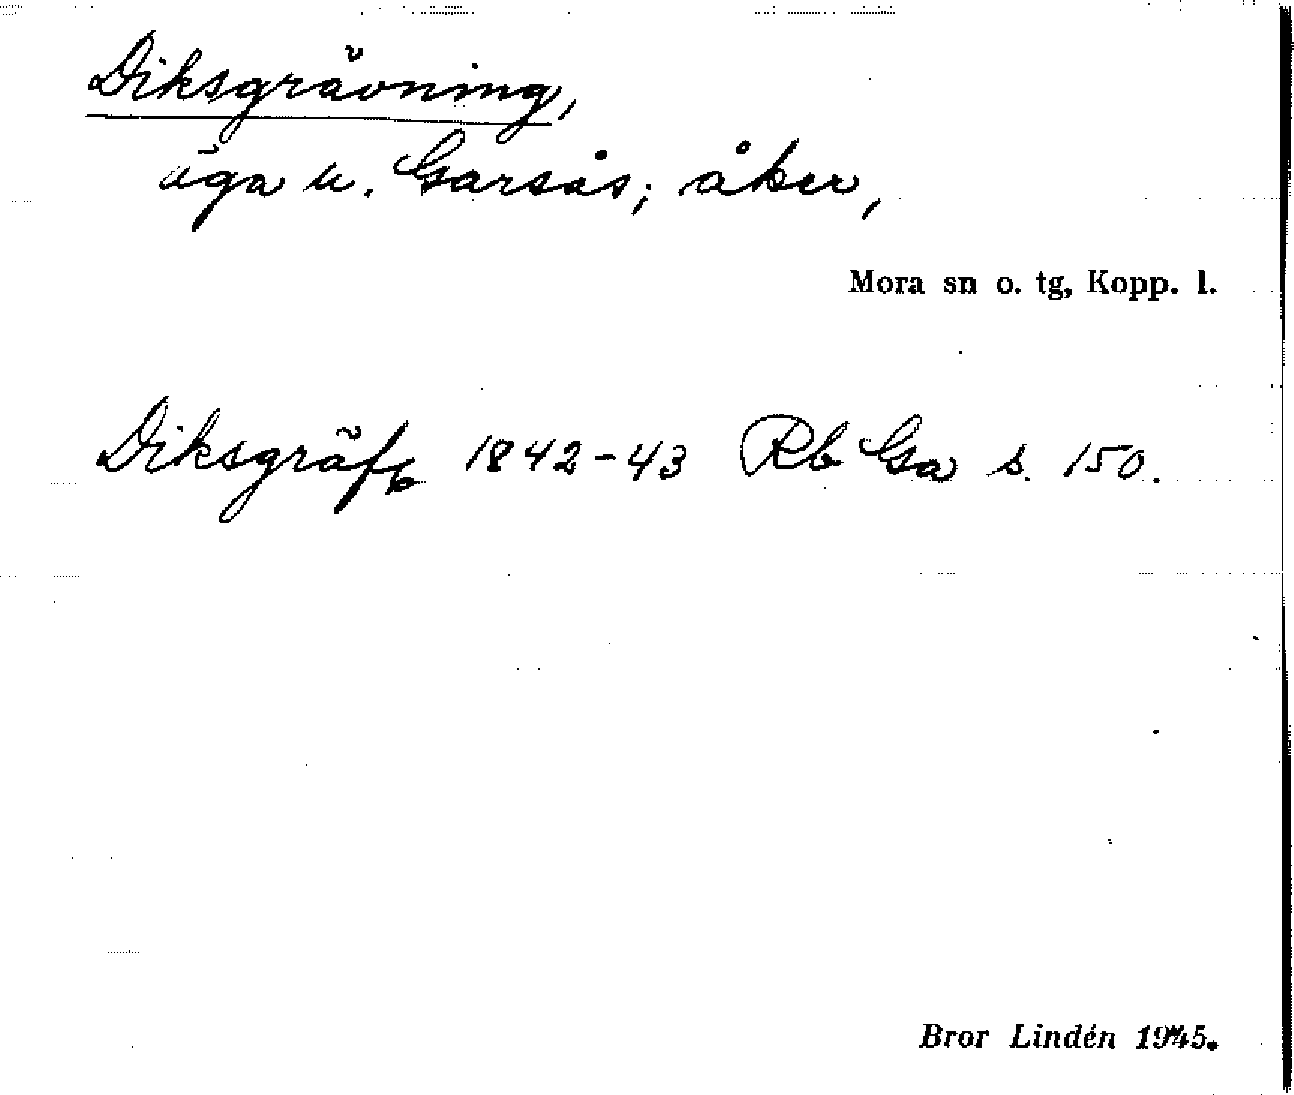 Diksgrävning,
äga u. Garsås; åker,
Mora sn o. tg, Kopp. l.
Diksgräfn 1842-43 Rb Ga s. 150.
Bror Lindén 1945.